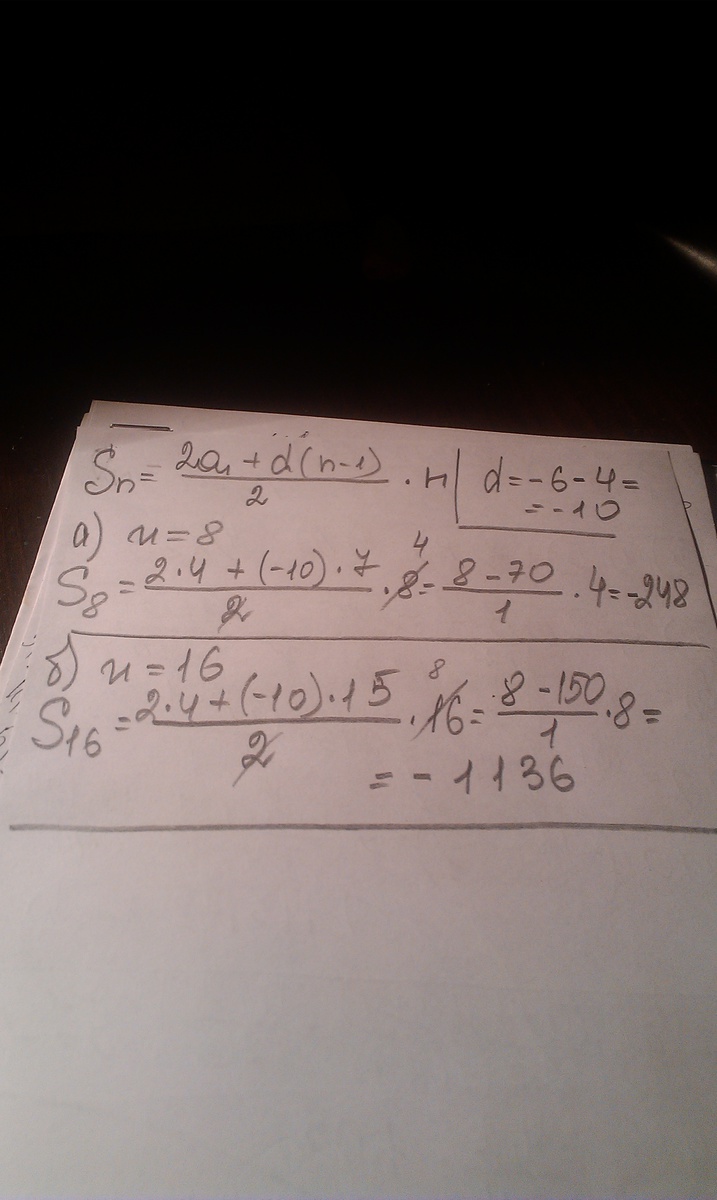 Sₙ = (2a₁ + d(n-1))/2 · n | d = -6 - 4 =
= -10
а) n = 8
S₈ = (2·4 + (-10)·7)/2 · 8 4 = (8 - 70)/1 · 4 = -248
б) n = 16
S₁₆ = (2·4 + (-10)·15)/2 · 16 8 = (8 - 150)/1 · 8 =
= - 1136